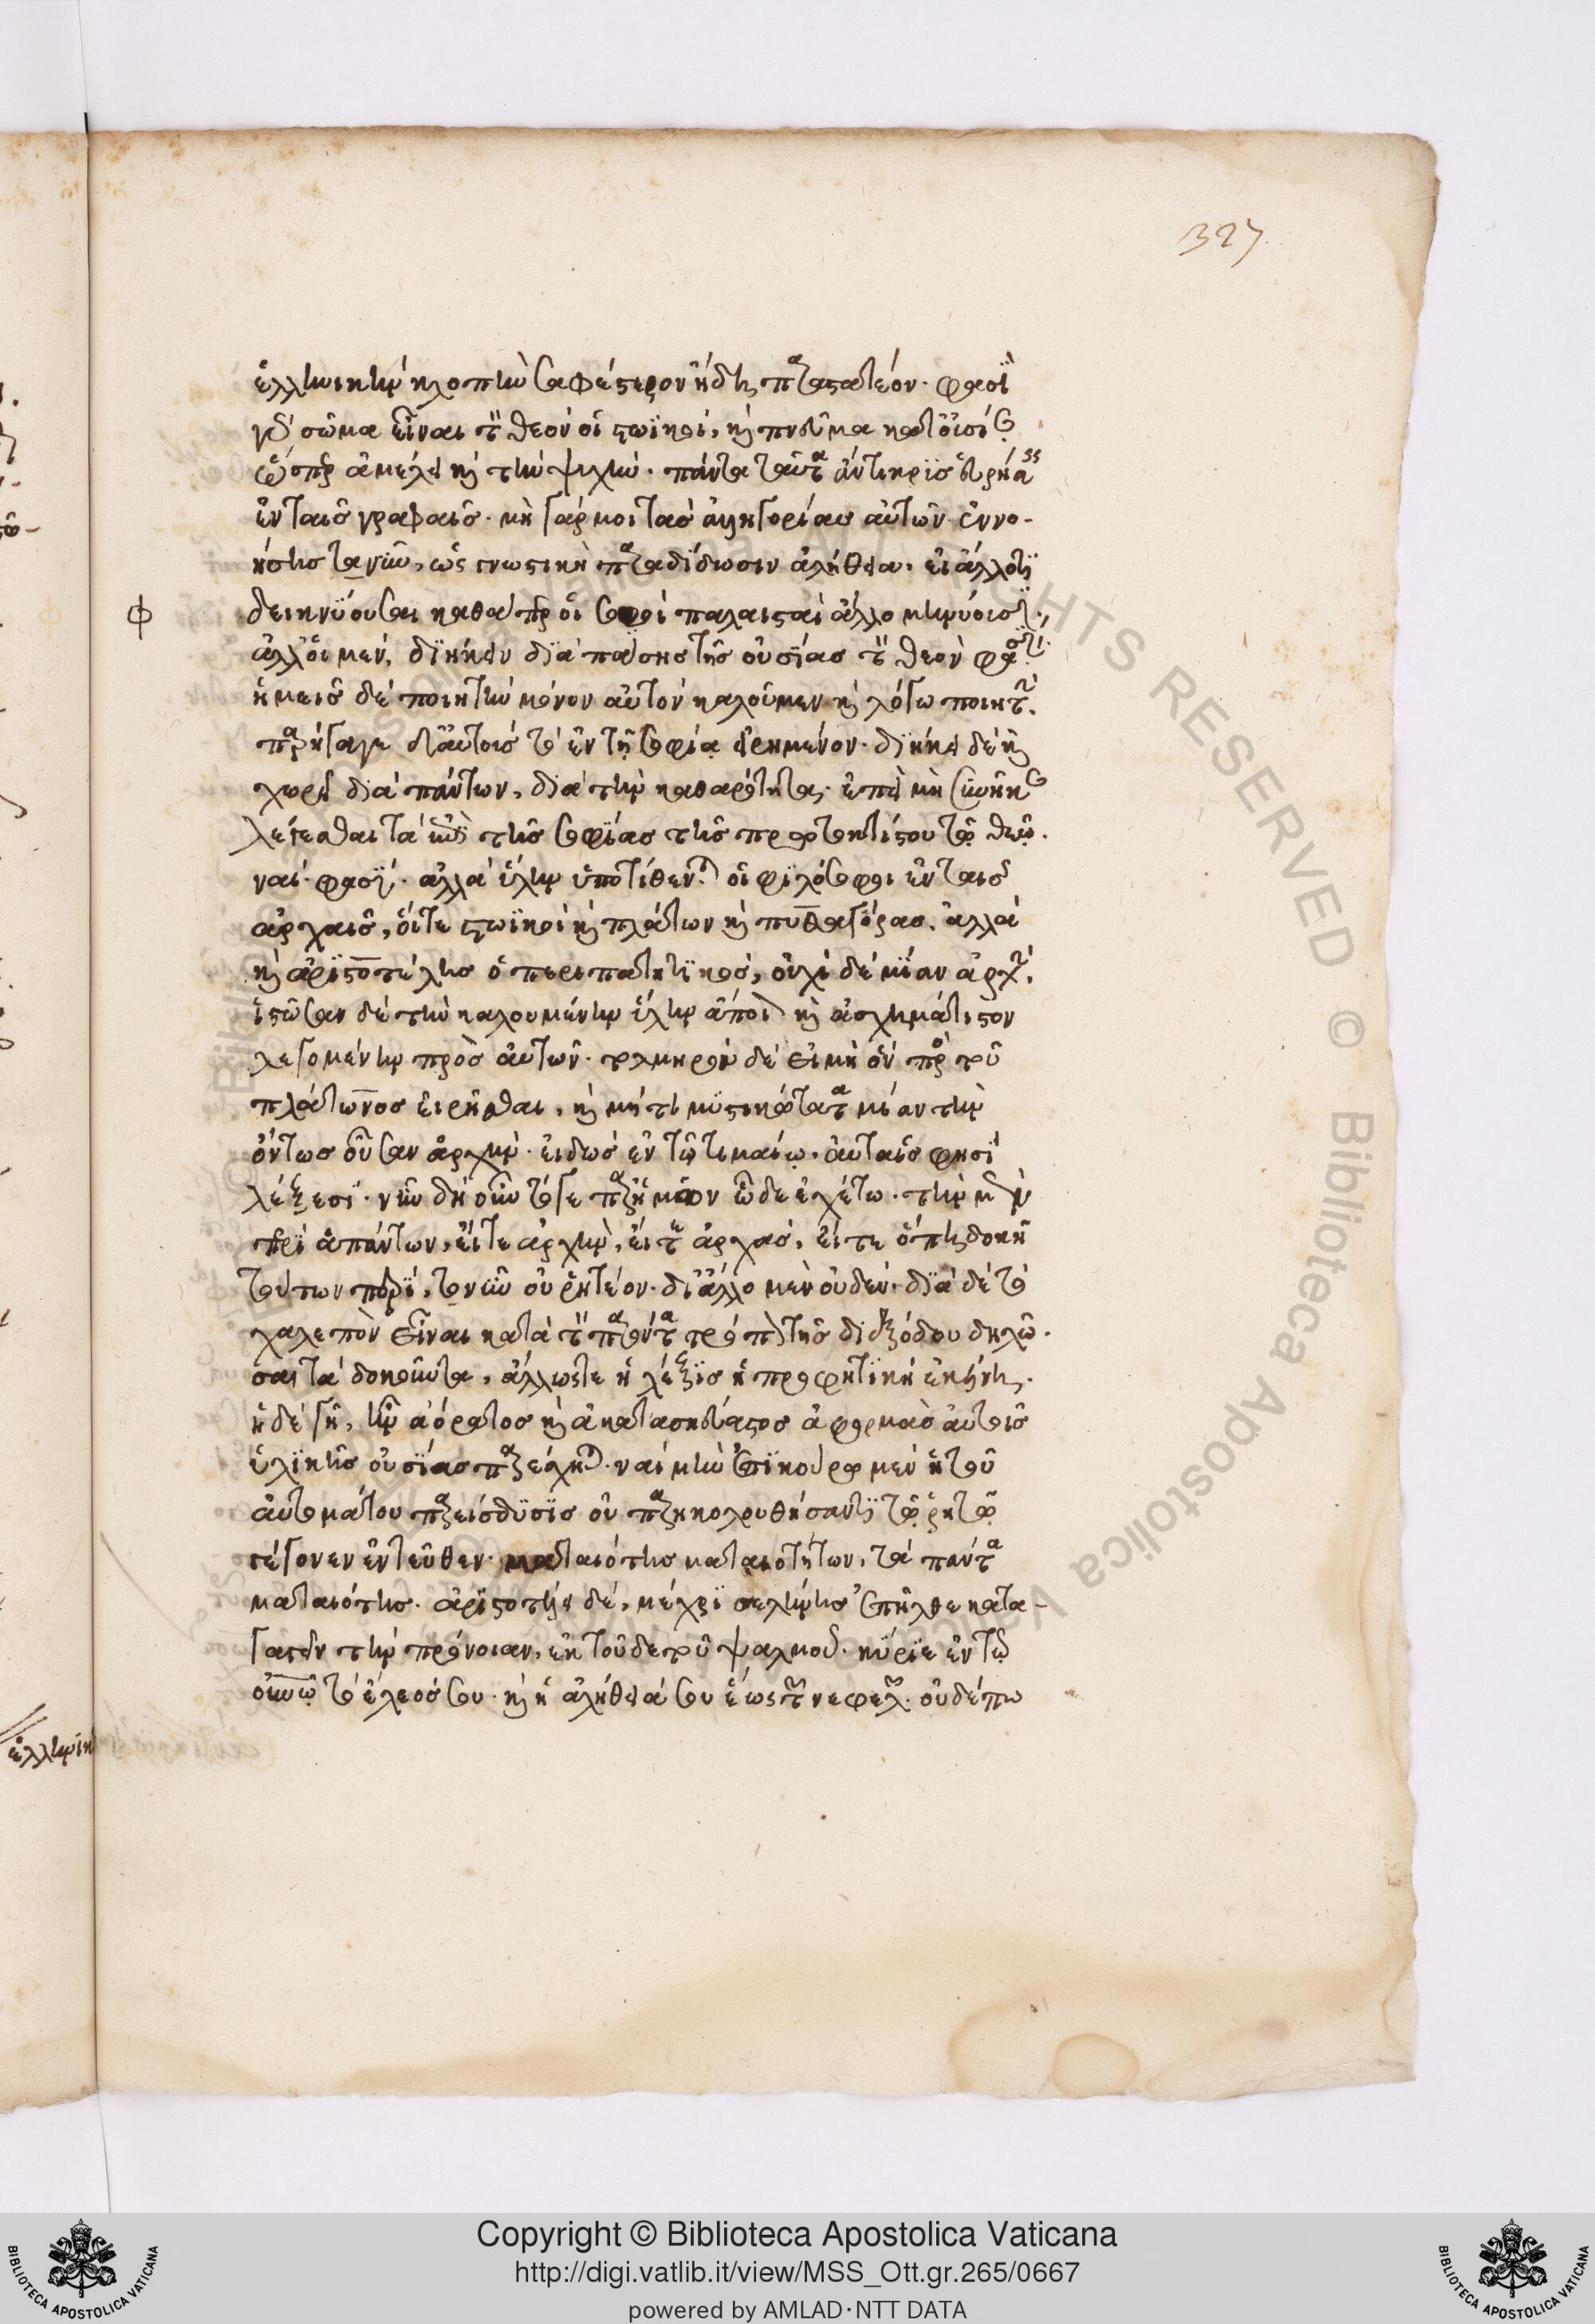 327
ἑλληνικὴν κλοπὴν σαφέστερον ἤδη παραστατέον. φασὶ
γὰρ σῶμα εἶναι τὸν θεὸν οἱ στωϊκοὶ, καὶ πνεῦμα κατ' οὐσίαν
ὥσπερ ἀμέλει καὶ τὴν ψυχήν. πάντα ταῦτα ἄντικρϋς εὑρήσεις
ἐν ταῖς γραφαῖς. μὴ γάρ μοι τὰς ἀλληγορίας αὐτῶν ἐννο-
ήσῃς τανῦν, ὡς γνωστικὴ παραδίδωσιν ἀλήθεια. εἰ ἄλλό τι
δεικνύουσαι καθάπερ οἱ σοφοὶ παλαισταὶ ἄλλο μηνύουσι.
ἀλλ' οἱ μὲν, διήκειν διὰ πάσης τῆς οὐσίας τὸν θεὸν φασὶ.
ἡμεῖς δὲ ποιητὴν μόνον αὐτὸν καλοῦμεν καὶ λόγω ποιητήν.
παρήγαγε δ' αὐτοὺς τὸ ἐν τῇ σοφίᾳ εἰρημένον. διήκει δὲ καὶ
χωρεῖ διὰ πάντων, διὰ τὴν καθαρότητα. ἐπεὶ μὴ συνῆκαν
λέγεσθαι ταῦτα ἐπὶ τῆς σοφίας τῆς πρωτοκτίστου τῷ θεῷ.
ναὶ. φασί. ἀλλὰ ὕλην ὑποτίθενται οἱ φιλόσοφοι ἐν ταῖς
ἀρχαῖς, οἵτε στωϊκοὶ καὶ πλάτων καὶ πυθαγόρας. ἀλλὰ
καὶ ἀριστοτέλης ὁ περιπατητικός, οὐχὶ δὲ μίαν ἀρχήν.
ἴστωσαν δὲ τὴν καλουμένην ὕλην ἄποιον καὶ ἀσχημάτιστον
λεγομένην πρὸς αὐτῶν. τολμηρὸν δὲ εἰ μὴ ὂν πρὸς τοῦ
πλάτωνος εἰρῆσθαι, καὶ μή τι μυστικώτατα μίαν τὴν
ὄντως οὖσαν ἀρχὴν. εἰδὼς ἐν τῷ τιμαίῳ. αὐταῖς φησὶ
λέξεσι. νῦν δὴ οὖν τόγε παρ' ἡμῶν ὧδε ἐχέτω. τὴν μὲν
περὶ ἁπάντων, εἴτε ἀρχὴν, εἴτε ἀρχὰς, εἴτε ὅπῃ δοκεῖ
τούτων πέρι, τονῦν οὐ ῥητέον. δι' ἄλλο μὲν οὐδὲν. διὰ δὲ τὸ
χαλεπὸν εἶναι κατὰ τὸν παρόντα τρόπον τῆς διεξόδου δηλῶ-
σαι τὰ δοκοῦντα, ἄλλωστε ἡ λέξις ἡ προφητικὴ ἐκείνη.
ἡ δὲ γῆ, ἦν ἀόρατος καὶ ἀκατασκεύαστος ἀφορμὰς αὐτοῖς
ὑλικῆς οὐσίας παρέσχηται. ναὶ μὴν ἐπικούρῳ μὲν ἡ τοῦ
αὐτομάτου παρείσδυσις οὐ παρηκολουθήσαντι τῷ ῥητῷ
γέγονεν ἐντεῦθεν. ματαιότης ματαιοτήτων, τὰ πάντα
ματαιότης. ἀριστοτέλει δὲ, μέχρι σελήνης ἐπῆλθε κατα-
γαγεῖν τὴν πρόνοιαν, ἐκ τοῦδε τοῦ ψαλμοῦ. κύριε ἐν τῷ
οὐνῷ τὸ ἔλεός σου. καὶ ἡ ἀλήθειά σου ἕως τῶν νεφελῶν. οὐδέπω
ἑλληνικ
Copyright © Biblioteca Apostolica Vaticana
http://digi.vatlib.it/view/MSS_Ott.gr.265/0667
powered by AMLAD·NTT DATA
BIBLIOTECA APOSTOLICA VATICANA
BIBLIOTECA APOSTOLICA VATICANA